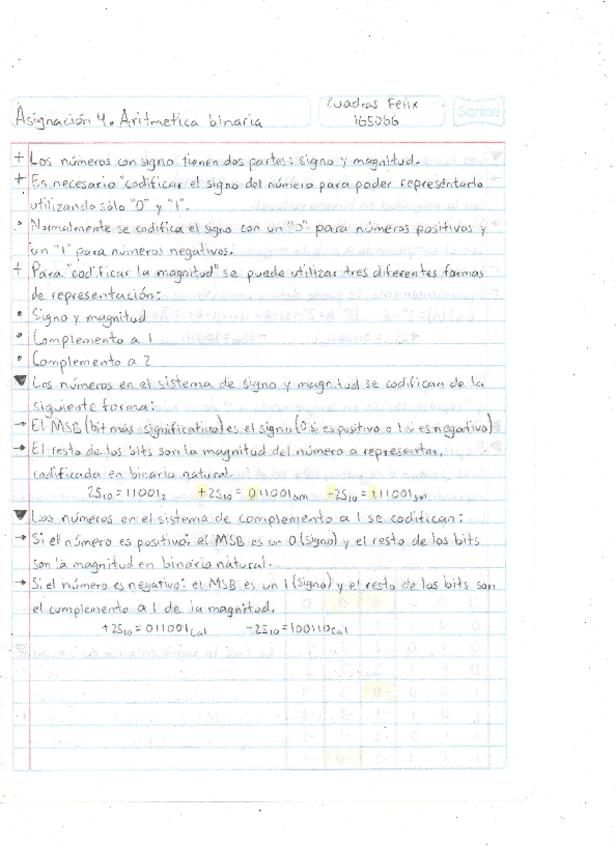 Cuadras Felix
Asignación 4. Aritmetica binaria
165066
Scribe
+ Los números con signo tienen dos partes: signo y magnitud.
+ Es necesario "codificar el signo del número para poder represéntarlo
utilizando sólo "0" y "1".
• Normalmente se codifica el signo con un "0" para números positivos y
un "1" para números negativos.
+ Para "codificar la magnitud" se puede utilizar tres diferentes formas
de representación:
• Signo y magnitud
• Complemento a 1
• Complemento a 2
▼ Los números en el sistema de signo y magnitud se codifican de la
siguiente forma:
→ El MSB (bit más significativo) es el signo (0 si es positivo o 1 si es negativo)
→ El resto de los bits son la magnitud del número a representar,
codificada en binario natural.
25₁₀ = 11001₂ +25₁₀ = 011001sm -25₁₀ = 111001sm
▼ Los números en el sistema de complemento a 1 se codifican:
→ Si el número es positivo: el MSB es un 0 (signo) y el resto de los bits
son la magnitud en binario natural.
→ Si el número es negativo: el MSB es un 1 (signo) y el resto de los bits son
el complemento a 1 de la magnitud.
+25₁₀ = 011001ca1 -25₁₀ = 100110ca1